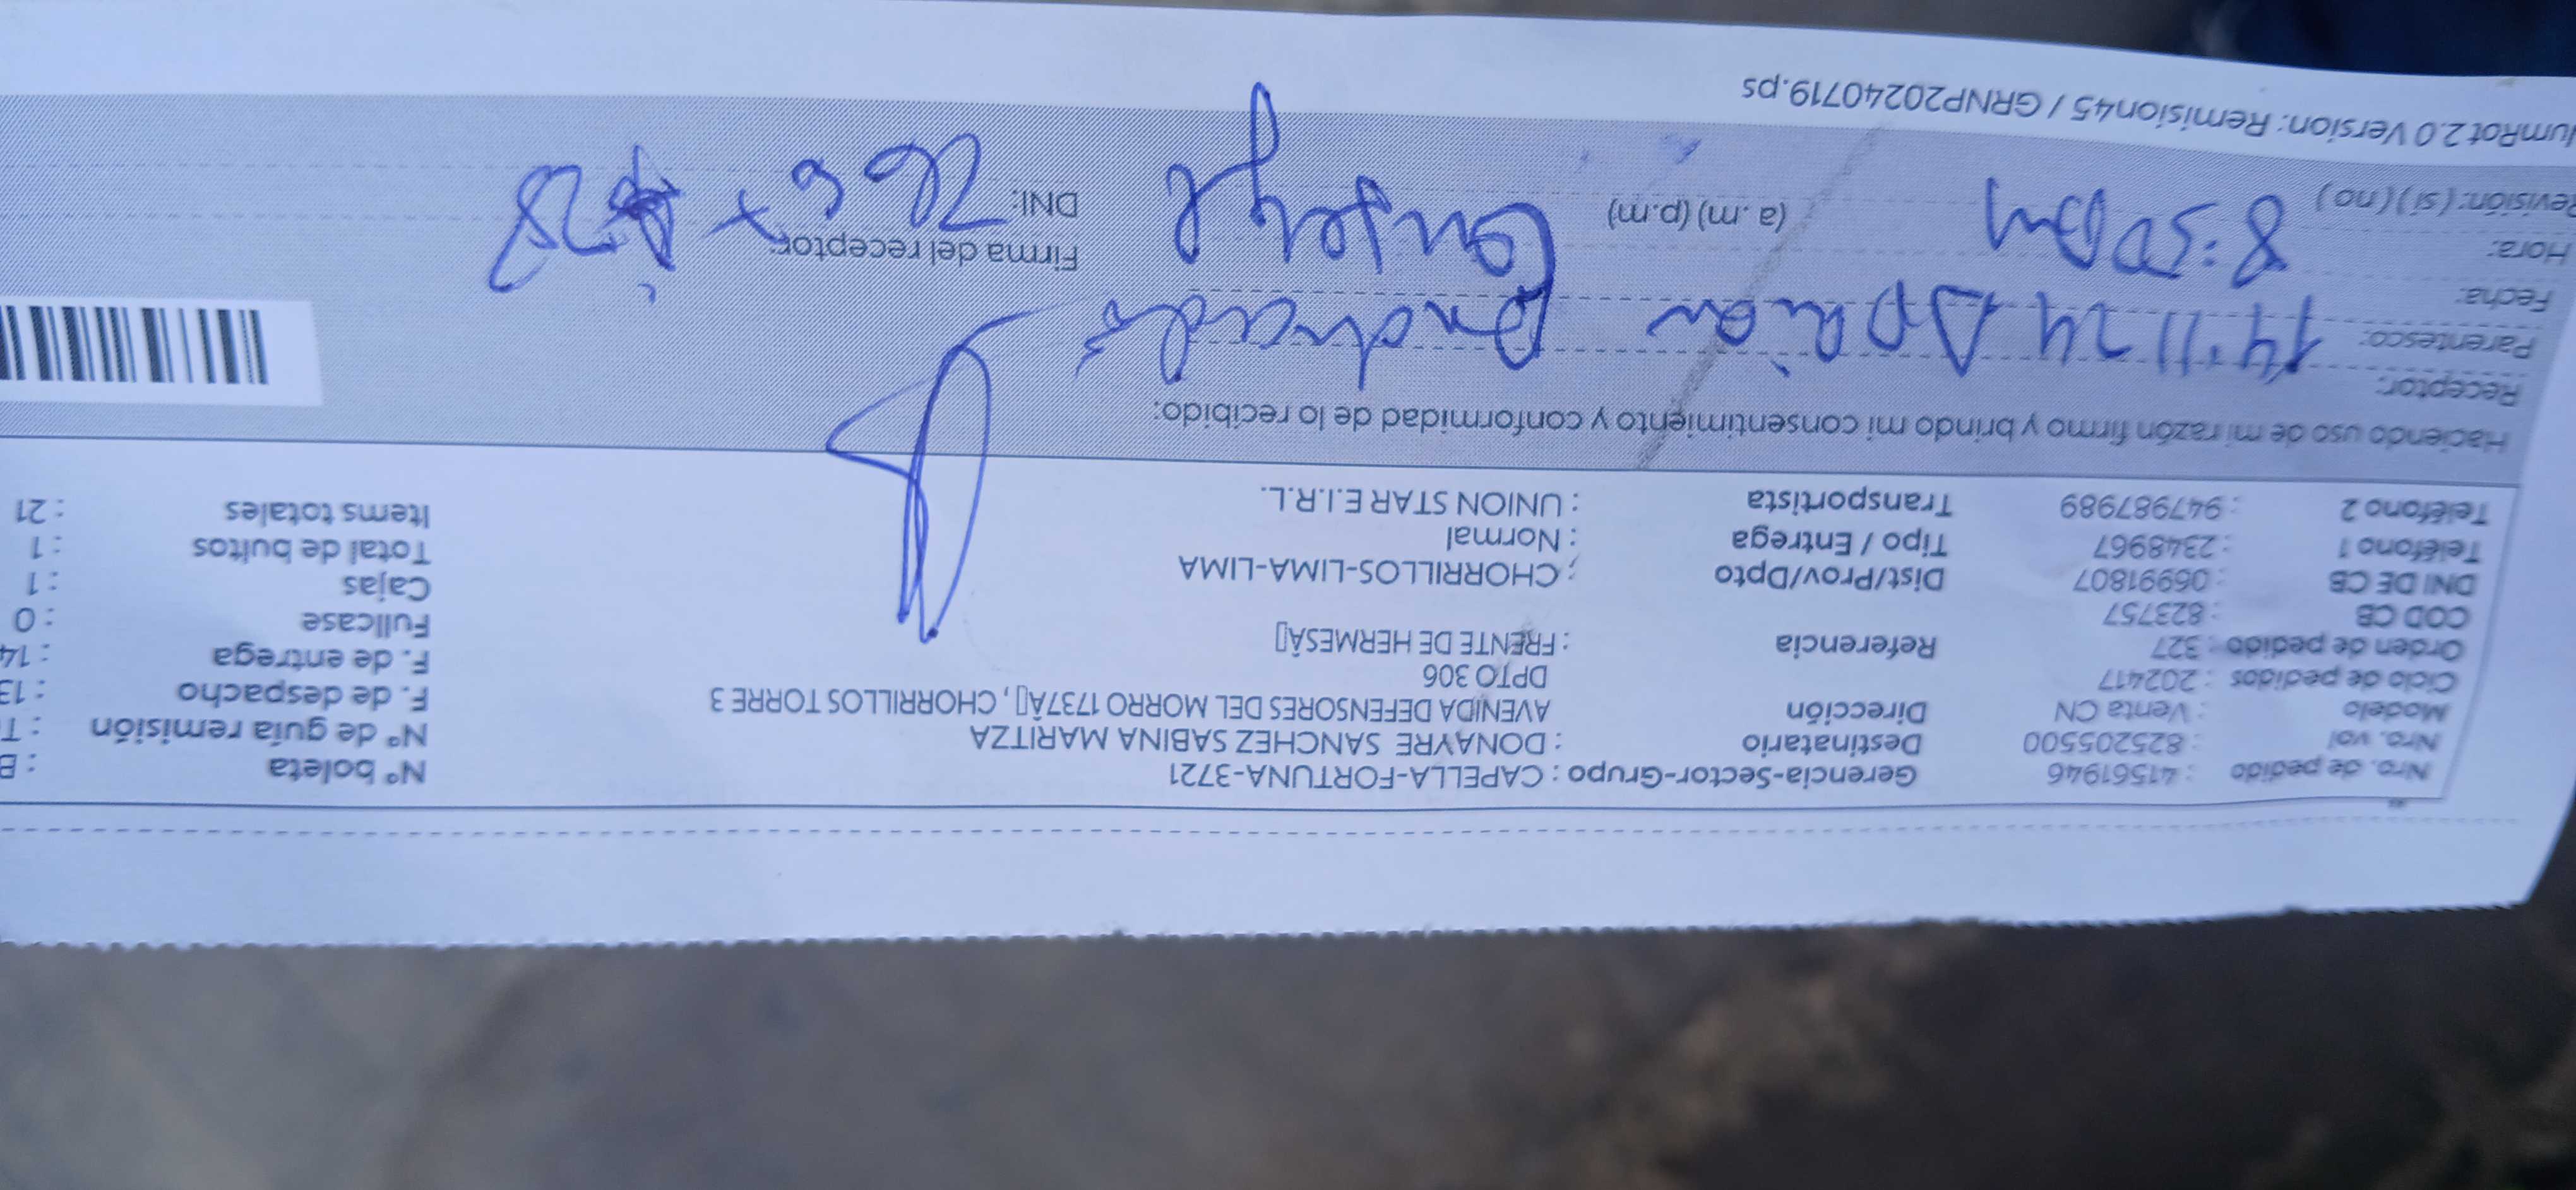 Nro. de pedido : 41561946 Gerencia-Sector-Grupo : CAPELLA-FORTUNA-3721 N° boleta : B
Nro. vol : 825205500 Destinatario : DONAYRE SANCHEZ SABINA MARITZA N° de guía remisión : T
Modelo : Venta CN Dirección AVENIDA DEFENSORES DEL MORRO 1737Â▯, CHORRILLOS TORRE 3 F. de despacho : 13
Ciclo de pedidos : 202417 DPTO 306 F. de entrega : 14
Orden de pedido : 327 Referencia : FRENTE DE HERMESÂ▯ Fullcase : 0
COD CB : 823757 Cajas : 1
DNI DE CB : 06991807 Dist/Prov/Dpto : CHORRILLOS-LIMA-LIMA Total de bultos : 1
Teléfono 1 : 2348967 Tipo / Entrega : Normal Items totales : 21
Teléfono 2 : 947987989 Transportista : UNION STAR E.I.R.L.
Haciendo uso de mi razón firmo y brindo mi consentimiento y conformidad de lo recibido:
Receptor:
Parentesco: 14 11 24
Fecha:
Hora: 8:50 am (a.m) (p.m) Conserje Firma del receptor:
Revisión: (si) (no) DNI:
NumRot 2.0 Version: Remision45 / GRNP20240719.ps